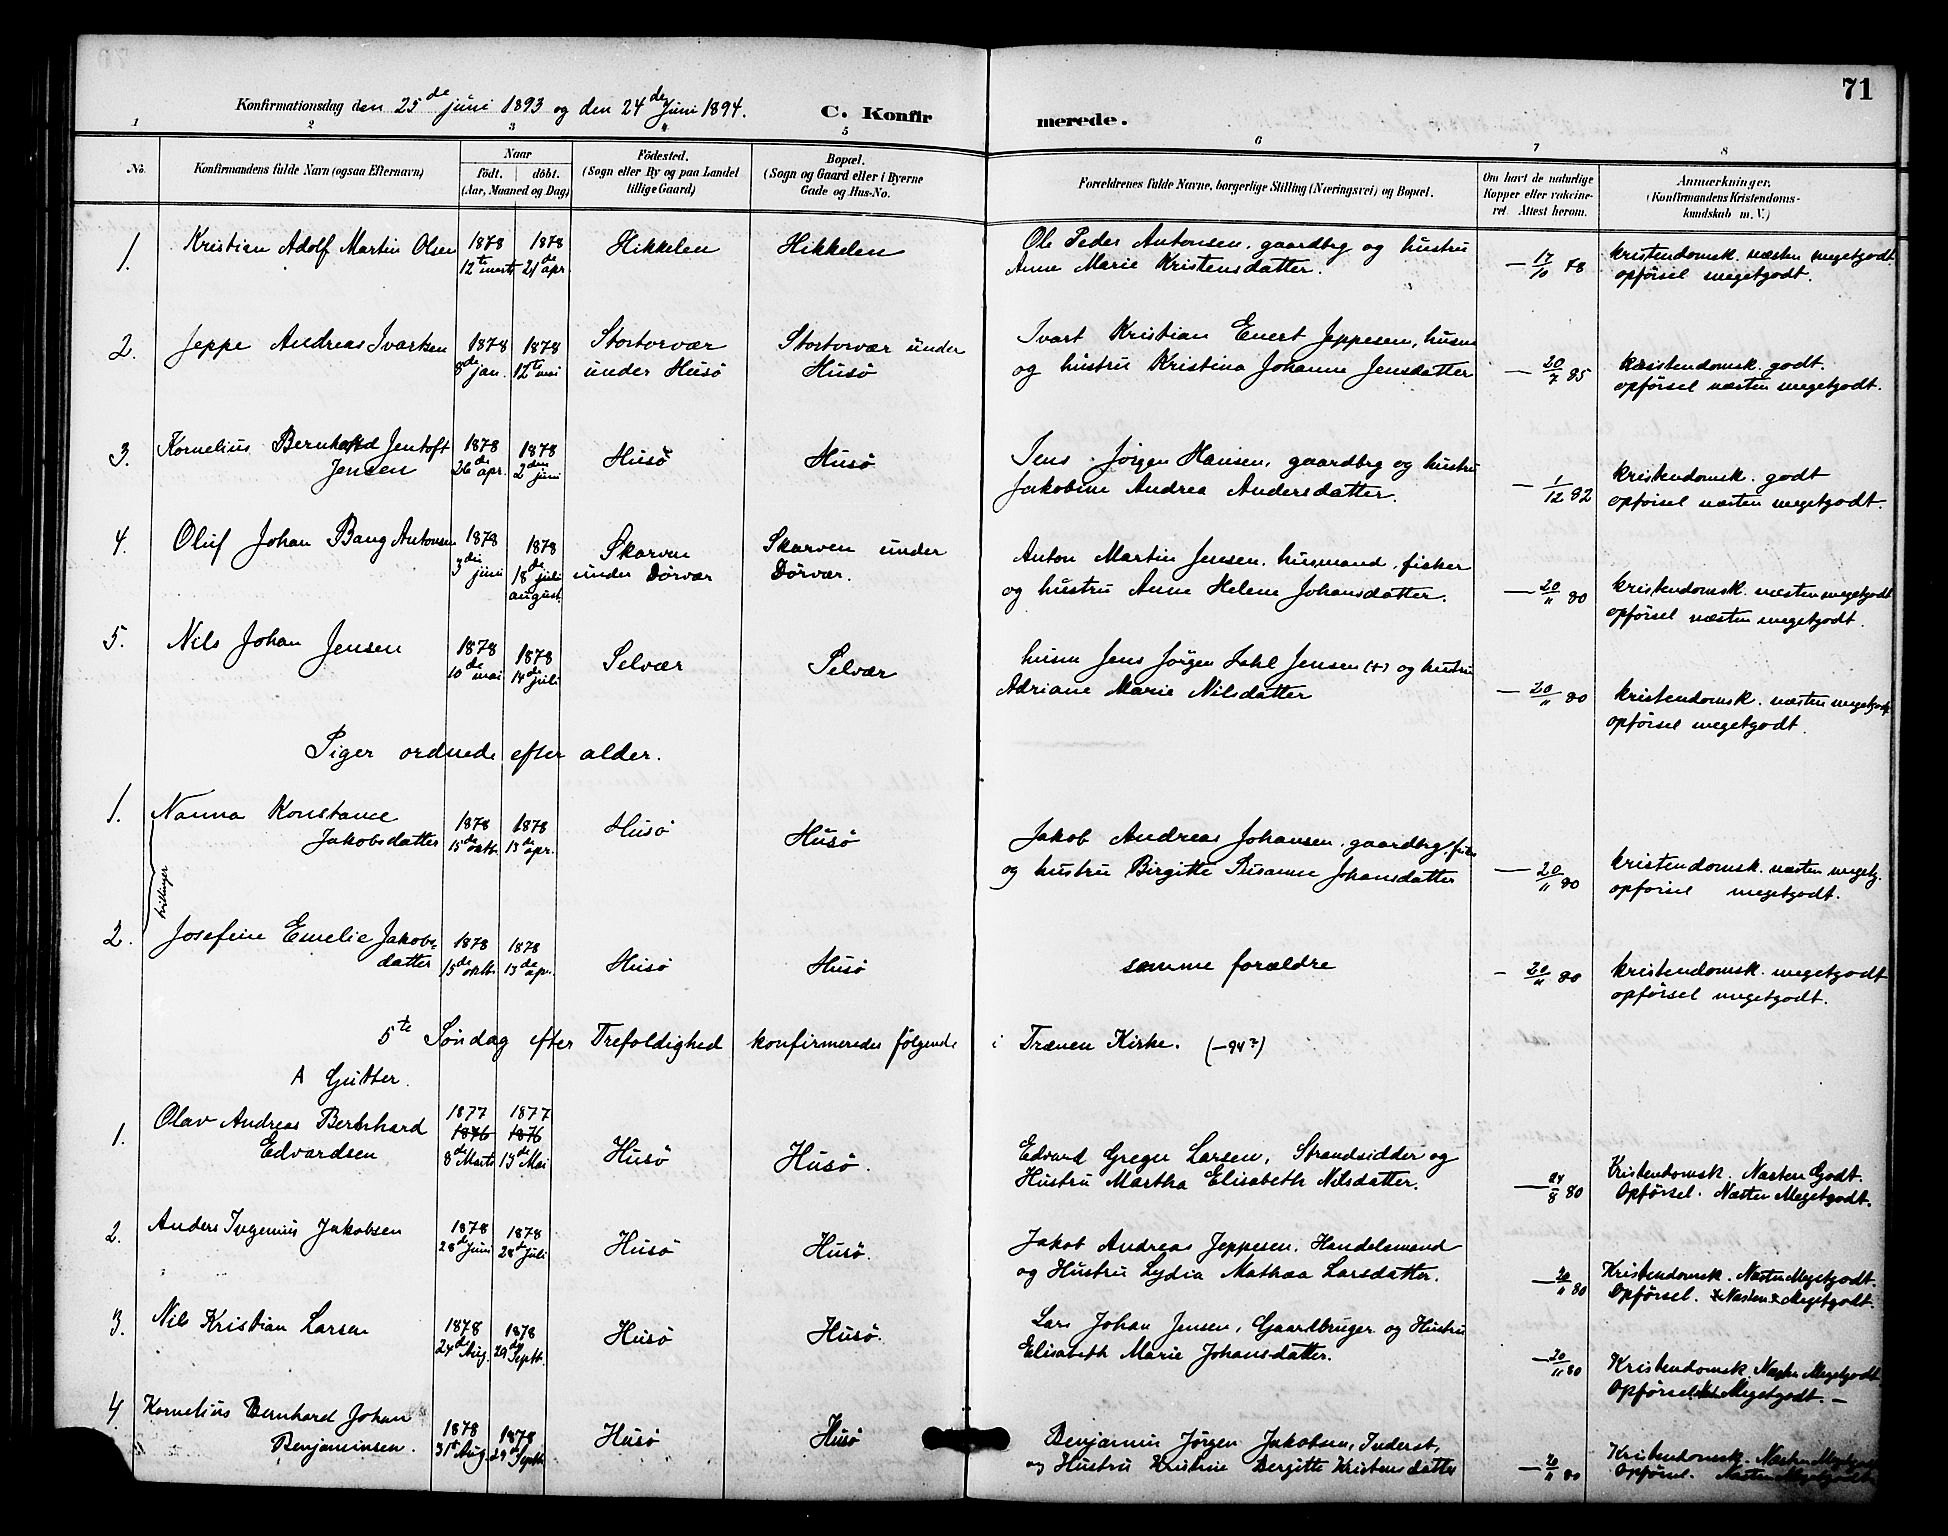 71
Konfirmationsdag den 25de juni 1893 og den 24de Juni 1894.
C. Konfirmerede.
1 2 3 4 5 6 7 8
No.
Konfirmandens fulde Navn (ogsaa Efternavn)
Naar
födt. döbt.
(Aar, Maaned og Dag)
Födested.
(Sogn eller By og paa Landet
tillige Gaard)
Bopæl.
(Sogn og Gaard eller i Byerne
Gade og Hus-No.
Forældrenes fulde Navne, borgerlige Stilling (Næringsvei) og Bopæl.
Om havt de naturlige
Kopper eller vakcine-
ret. Attest herom.
Anmærkninger.
(Konfirmandens Kristendoms-
kundskab m. V.)
1. Kristian Adolf Martin Olsen 1878 12te marts 1878 21de apr. Hikkelen Hikkelen
Ole Peder Antonsen. gaardbrg og hustru
Anne Marie Kristensdatter.
— 17/10 78
kristendomsk. næsten megetgodt.
opførsel megetgodt.
2. Jeppe Andreas Ivartsen 1878 8de jan. 1878 12te mai
Stortorvær
under Husö
Stortorvær under
Husö
Ivart Kristian Enert Jeppesen, husm
og hustru Kristina Johanne Jensdatter
— 20/7 85
kristendomsk. godt.
opførsel næsten megetgodt.
3. Kornelius Bernhard Jentoft
Jensen
1878 26de apr. 1878 2den juni Husö Husö
Jens Jörgen Hansen, gaardbrg og hustru
Jakobine Andrea Andersdatter.
— 1/12 82
kristendomsk. godt
opførsel næsten megetgodt.
4. Oluf Johan Bang Antonsen 1878 3die juni 1878 18de juli august.
Skarven
under Dörvær
Skarven under
Dörvær.
Anton Martin Jensen. husmand, fisker
og hustru Anne Helene Johansdatter.
— 20/11 80
kristendomsk. næsten megetgodt
opførsel næsten megetgodt.
5. Nils Johan Jensen 1878 10de mai 1878 14de juli Selvær Selvær
husm Jens Jörgen Dahl Jensen (+) og hustru
Adriane Marie Nilsdatter
— 20/11 80
kristendomsk. næsten megetgodt
opførsel megetgodt.
Piger ordnede efter alder.
1. Nanna Konstance
Jakobsdatter
tvillinger
1878 15de oktb. 1878 13de apr. Husö Husö
Jakob Andreas Johansen. gaardbrg,
og hustru Birgitte Susanne Johansdatter
— 20/11 80
kristendomsk. næsten megetg.
opførsel megetgodt.
2. Josefine Emelie Jakobs-
datter
1878 15de oktb. 1878 13de ap. Husö Husö
samme forældre
— 20/11 80
kristendomsk. megetgodt
opførsel megetgodt.
5te Söndag efter Trefoldighed konfirmeredes følgende i Trænen Kirke. (—94?)
A Gutter.
1. Olav Andreas Bernhard
Edvardsen
1877 1876 8de Marts 1877 1876 13de Mai Husö Husö.
Edvard Greger Larsen, Strandsidder og
Hustru Martha Elisabeth Nilsdatter.
— 24/8 80
Kristendomsk. Næsten Godt.
Opførsel. Næsten Megetgodt.
2. Anders Ingenius Jakobsen 1878 28de Juni 1878 28de Juli Husö Husö.
Jakob Andreas Jeppesen. Handelsmand
og Hustru Lydia Mathæa Larsdatter.
— 20/11 80
Kristendomsk. Næsten Megetgodt.
Opførsel. Næsten Megetgodt.
3. Nils Kristian Larsen 1878 24de Aug. 1878 29de Septb. Husö Husö.
Lars Johan Jensen, Gaardbruger og Hustru
Elisabeth Marie Johansdatter.
— 20/11 80
Kristendomsk. Næsten Megetgodt.
Opførsel. Megetgodt. —
4 Kornelius Bernhard Johan
Benjaminsen.
1878 31te Aug. 1878 29de Septb. Husö Husö
Benjamin Jörgen Jakobsen, Inderst,
og Hustru Kristine Bergitte Kristensdatter
— 20/11 80
Kristendomsk. Næsten Megetgodt
Opførsel. Næsten Megetgodt